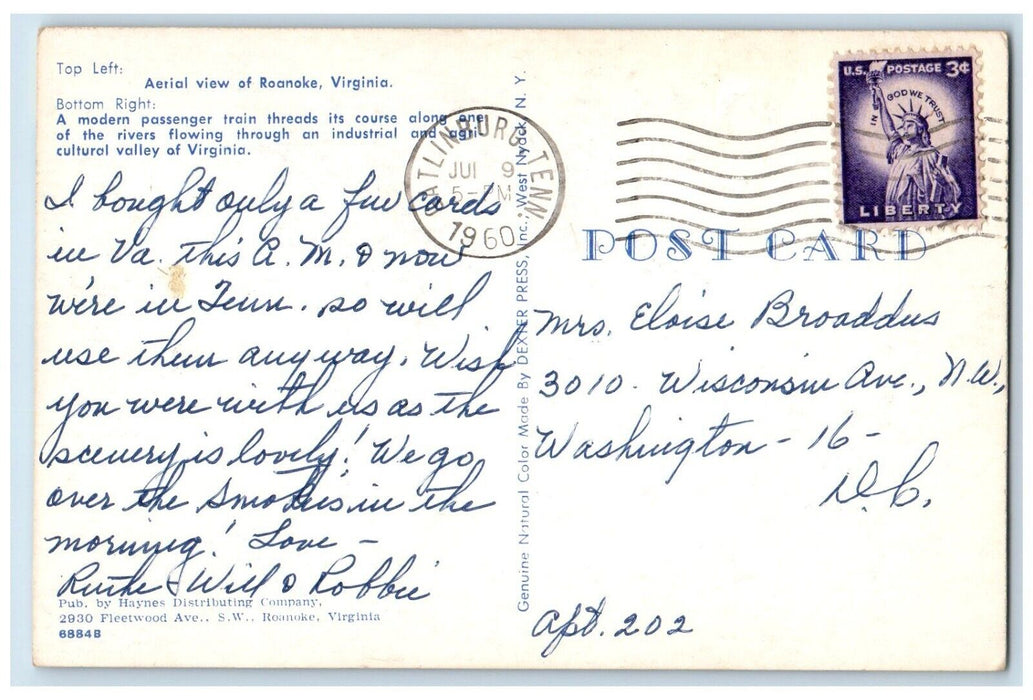 Top Left:
Aerial view of Roanoke, Virginia.
Bottom Right:
A modern passenger train threads its course along one
of the rivers flowing through an industrial and agri-
cultural valley of Virginia.
I bought only a few cards
in Va. this A.M. & now
we're in Tenn. so will
use them anyway. Wish
you were with us as the
scenery is lovely! We go
over the Smokies in the
morning! Love -
Ruth Will & Robbie
Pub. by Haynes Distributing Company,
2930 Fleetwood Ave., S.W., Roanoke, Virginia
6884B
Genuine Natural Color Made By DEXTER PRESS, Inc., West Nyack, N. Y.
GATLINBURG, TENN.
JUL 9
5-PM
1960
U.S. POSTAGE 3¢
IN GOD WE TRUST
LIBERTY
POST CARD
Mrs. Eloise Broaddus
3010 - Wisconsin Ave., N.W.,
Washington - 16 -
D.C.
Apt. 202